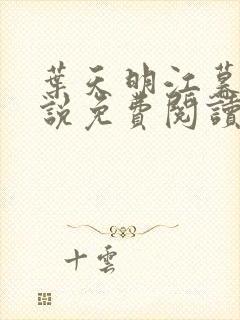 葉天明江慕
說免費閱讀
十雲